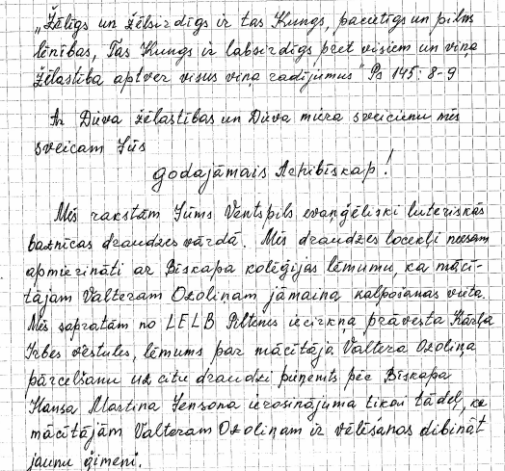 „Žēlīgs un žēlsirdīgs ir tas Kungs, pacietīgs un pilns
lēnības, Tas Kungs ir labsirdīgs pret visiem un viņa
žēlastība aptver visus viņa radījumus" Ps 145: 8-9
Ar Dieva žēlastības un Dieva miera sveicienu mēs
sveicam Jūs
godajāmais Arhibīskap!
Mēs rakstām Jums Ventspils evaņģēliski luteriskās
baznīcas draudzes vārdā. Mēs draudzes locekļi neesam
apmierināti ar Bīskapa kolēģijas lēmumu, ka mācī-
tājam Valteram Ozoliņam jāmaina kalpošanas vieta.
Mēs sapratām no LELB Piltenes iecirkņa prāvesta Kārļa
Irbes vēstules, lēmums par mācītāja Valtera Ozoliņa
pārcelšanu uz citu draudzi pieņemts pēc Bīskapa
Hansa Martina Jensona ierosinājuma tikai tādēļ, ka
mācītājam Valteram Ozoliņam ir vēlēšanās dibināt
jaunu ģimeni.